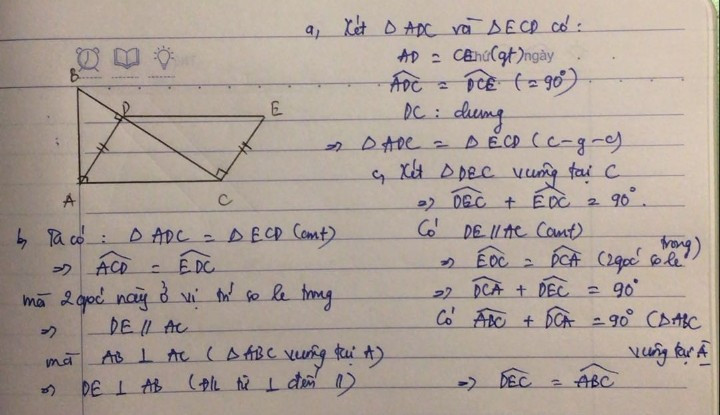 a, Xét △ ADC và △ ECD có:
AD = CE (gt)
Thứ ngày
ADC = DCE (= 90°)
DC : chung
=> △ ADC = △ ECD (c-g-c)
B
D
E
A
C
b, Ta có : △ ADC = △ ECD (cmt)
=> ACD = EDC
mà 2 góc này ở vị trí so le trong
=> DE // AC
mà AB ⊥ AC ( △ ABC vuông tại A)
=> DE ⊥ AB (Đlí từ ⊥ đến //)
c, Xét △ DEC vuông tại C
=> DEC + EDC = 90°.
Có DE // AC (cmt)
=> EDC = DCA (2 góc so le trong)
=> DCA + DEC = 90°
Có ABC + DCA = 90° (△ABC
vuông tại A
=> DEC = ABC